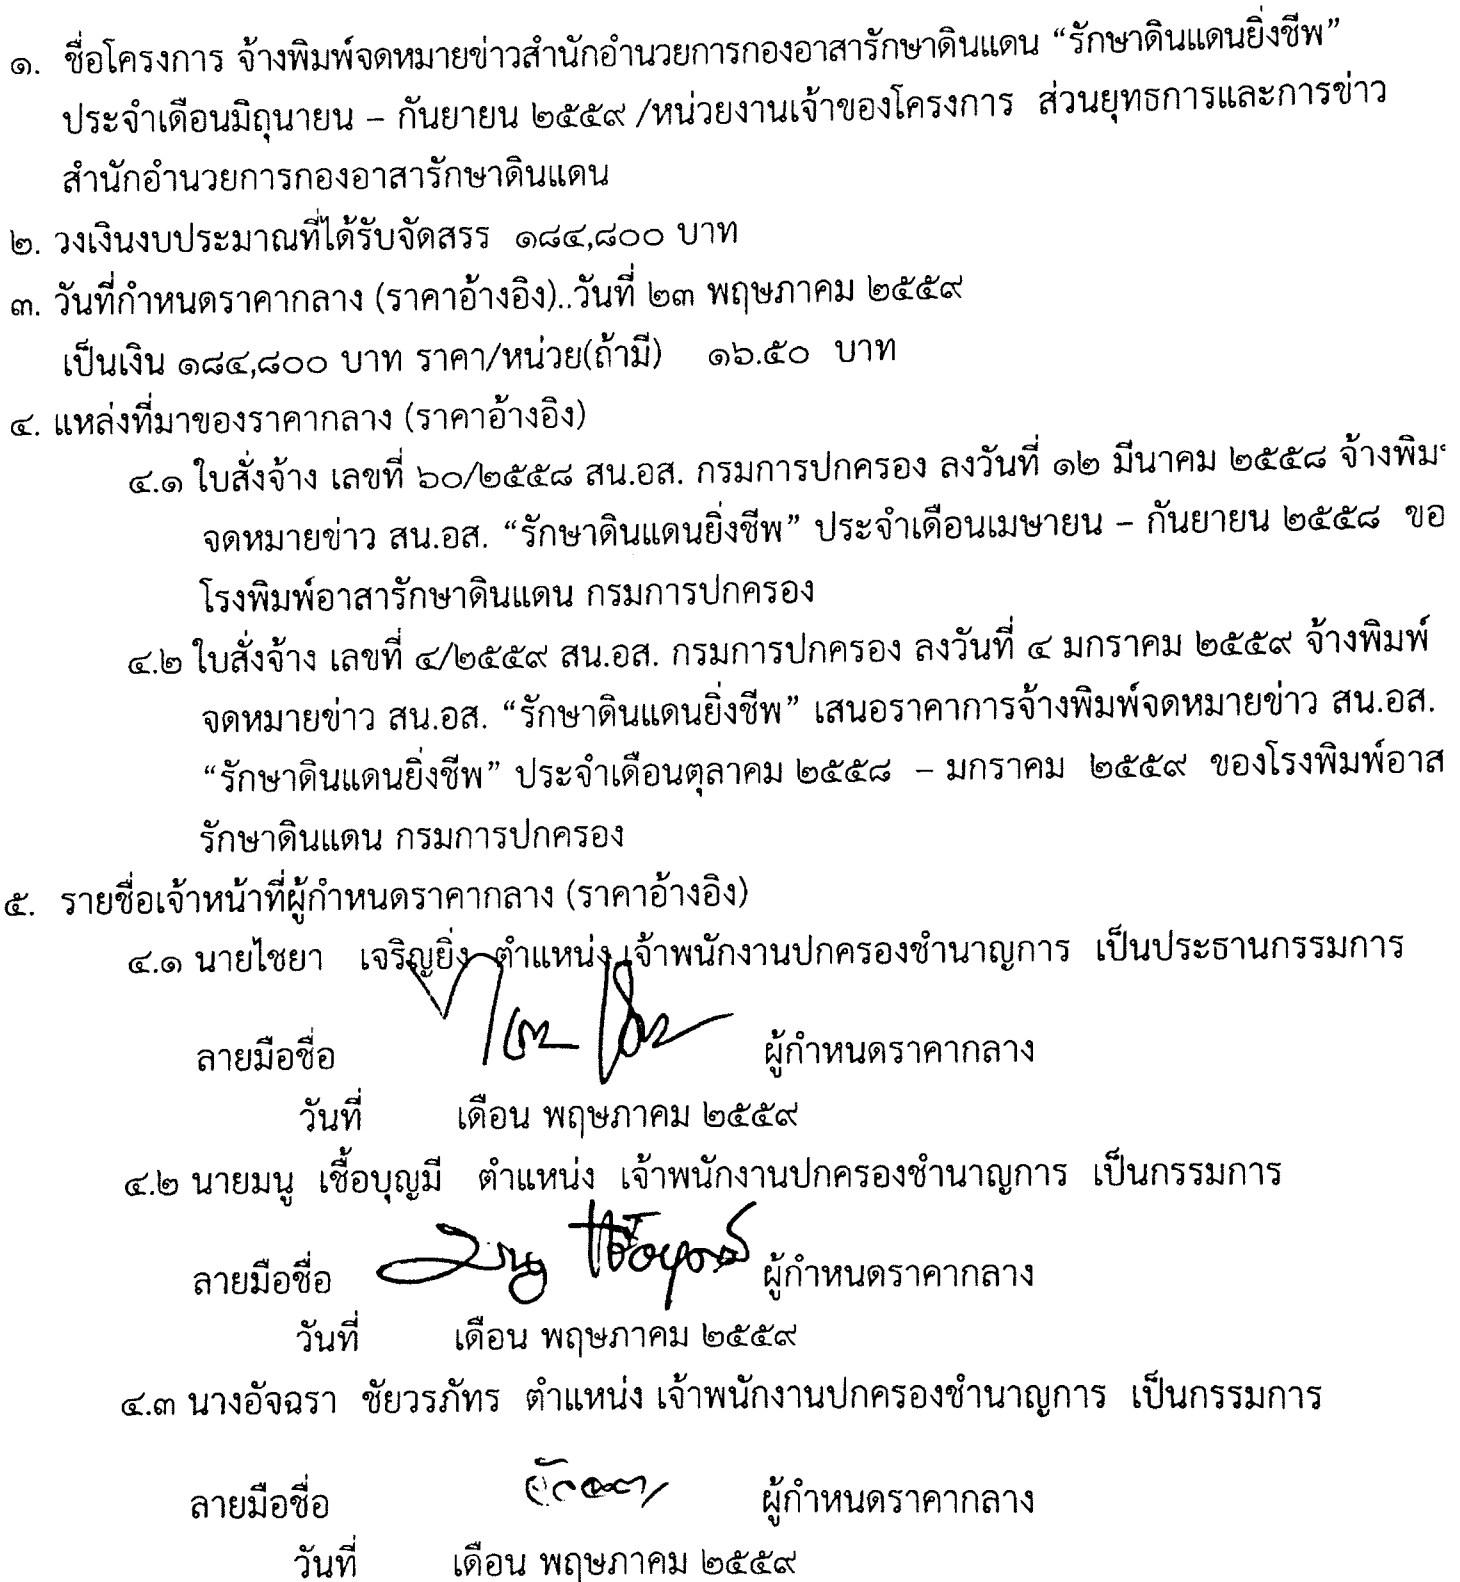 ๑. ชื่อโครงการ จ้างพิมพ์จดหมายข่าวสำนักอำนวยการกองอาสารักษาดินแดน “รักษาดินแดนยิ่งชีพ”
ประจำเดือนมิถุนายน – กันยายน ๒๕๕๙ /หน่วยงานเจ้าของโครงการ ส่วนยุทธการและการข่าว
สำนักอำนวยการกองอาสารักษาดินแดน
๒. วงเงินงบประมาณที่ได้รับจัดสรร ๑๘๔,๘๐๐ บาท
๓. วันที่กำหนดราคากลาง (ราคาอ้างอิง)..วันที่ ๒๓ พฤษภาคม ๒๕๕๙
เป็นเงิน ๑๘๔,๘๐๐ บาท ราคา/หน่วย(ถ้ามี) ๑๖.๕๐ บาท
๔. แหล่งที่มาของราคากลาง (ราคาอ้างอิง)
๔.๑ ใบสั่งจ้าง เลขที่ ๖๐/๒๕๕๘ สน.อส. กรมการปกครอง ลงวันที่ ๑๒ มีนาคม ๒๕๕๘ จ้างพิม
จดหมายข่าว สน.อส. “รักษาดินแดนยิ่งชีพ” ประจำเดือนเมษายน – กันยายน ๒๕๕๘ ขอ
โรงพิมพ์อาสารักษาดินแดน กรมการปกครอง
๔.๒ ใบสั่งจ้าง เลขที่ ๔/๒๕๕๙ สน.อส. กรมการปกครอง ลงวันที่ ๔ มกราคม ๒๕๕๙ จ้างพิมพ์
จดหมายข่าว สน.อส. “รักษาดินแดนยิ่งชีพ” เสนอราคาการจ้างพิมพ์จดหมายข่าว สน.อส.
“รักษาดินแดนยิ่งชีพ” ประจำเดือนตุลาคม ๒๕๕๘ – มกราคม ๒๕๕๙ ของโรงพิมพ์อาส
รักษาดินแดน กรมการปกครอง
๕. รายชื่อเจ้าหน้าที่ผู้กำหนดราคากลาง (ราคาอ้างอิง)
๔.๑ นายไชยา เจริญยิ่ง ตำแหน่ง เจ้าพนักงานปกครองชำนาญการ เป็นประธานกรรมการ
ลายมือชื่อ ผู้กำหนดราคากลาง
วันที่ เดือน พฤษภาคม ๒๕๕๙
๔.๒ นายมนู เชื้อบุญมี ตำแหน่ง เจ้าพนักงานปกครองชำนาญการ เป็นกรรมการ
ลายมือชื่อ มนู เชื้อบุญมี ผู้กำหนดราคากลาง
วันที่ เดือน พฤษภาคม ๒๕๕๙
๔.๓ นางอัจฉรา ชัยวรภัทร ตำแหน่ง เจ้าพนักงานปกครองชำนาญการ เป็นกรรมการ
ลายมือชื่อ ผู้กำหนดราคากลาง
วันที่ เดือน พฤษภาคม ๒๕๕๙